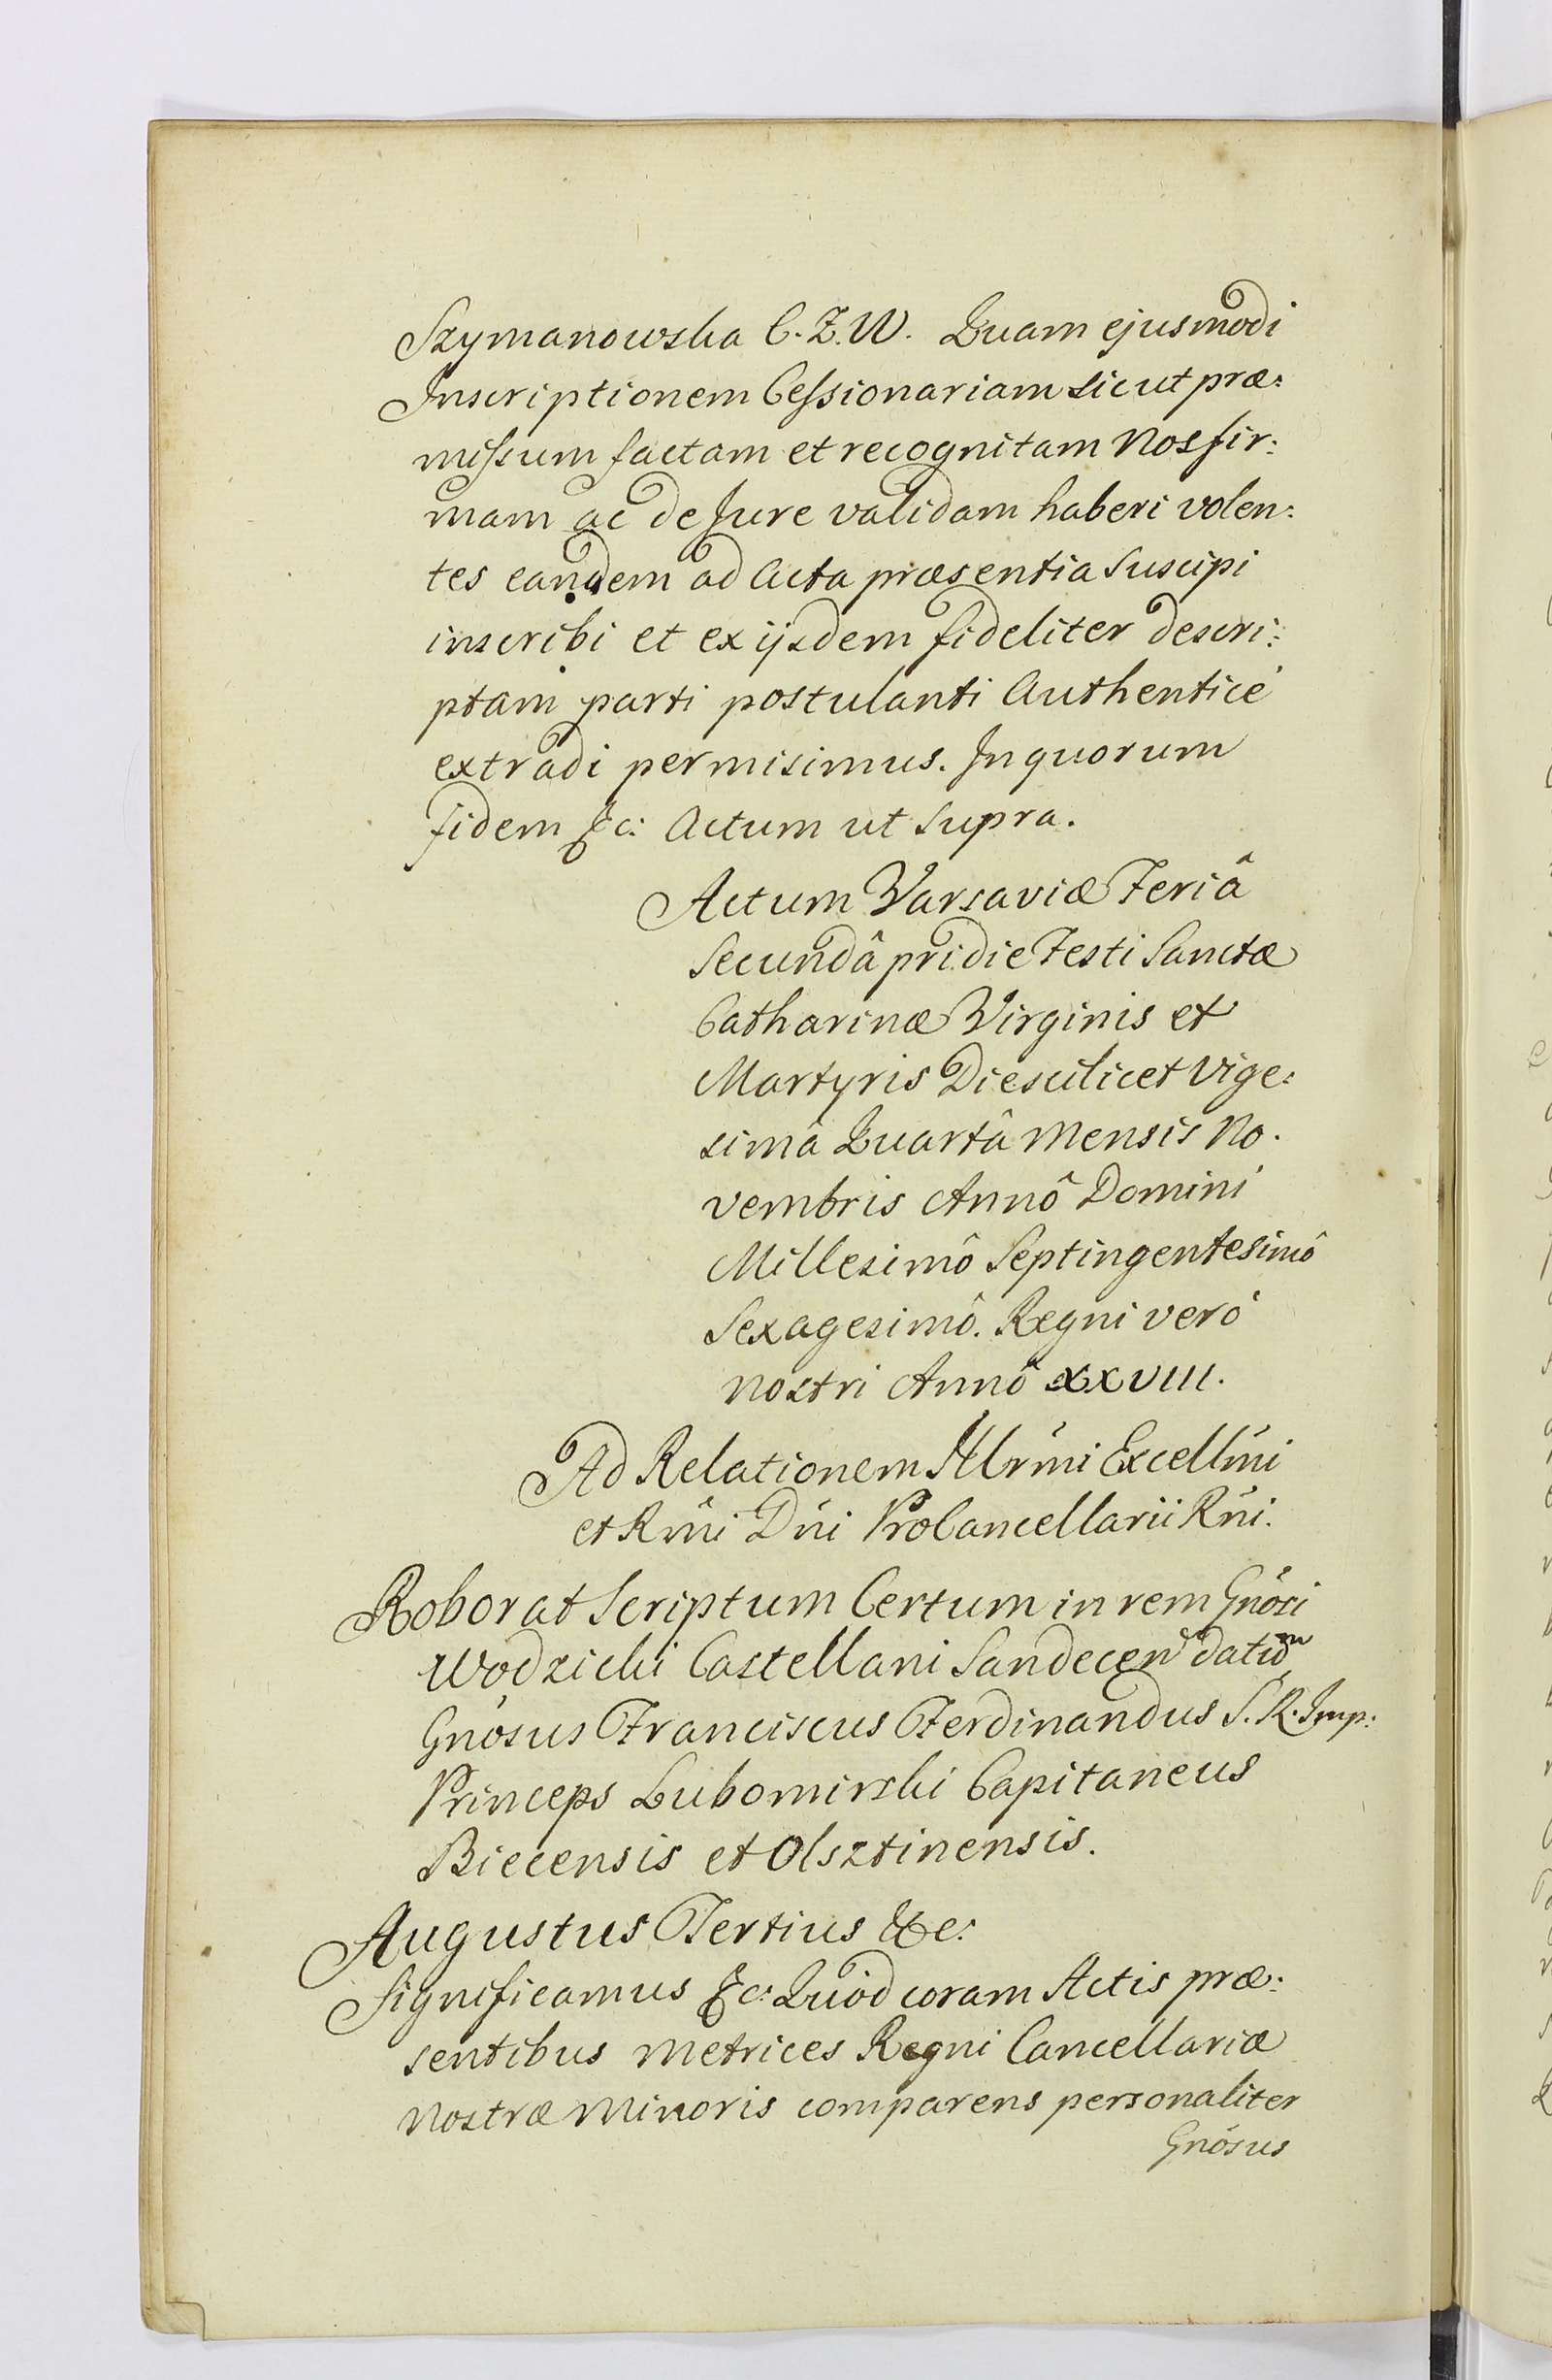 Szymanowska C. Z. W. Quam ejusmodi
Inscriptionem Cessionariam sicut præ:
missum factam et recognitam Nos fir:
mam ac de Jure validam haberi volen:
tes eandem ad Acta præsentia suscipi
inscribi et ex ijsdem fideliter descri:
ptam parti postulanti Authenticè
extradi permisimus. In quorum
fidem &c: Actum ut supra.
Actum Varsaviæ Feriâ
Secundâ pridie Festi Sanctæ
Catharinæ Virginis et
Martyris Die scilicet Vige:
simâ Quartâ Mensis No.
vembris Annô Domini
Millesimô Septingentesimô
Sexagesimô. Regni verò
nostri Annô XXVIII.
Ad Relationem Illrmi Excellmi
et Rmi Dni ProCancellarii Rni.
Roborat Scriptum Certum in rem Gnosi
Wodzicki Castellani Sandecen datum
Gnosus Franciscus Ferdinandus S. R. Imp:
Princeps Lubomirski Capitaneus
Biecensis et Olsztinensis.
Augustus Tertius &c:
Significamus &c: Quod coram Actis præ:
sentibus Metrices Regni Cancellariæ
Nostræ Minoris comparens personaliter
Gnosus